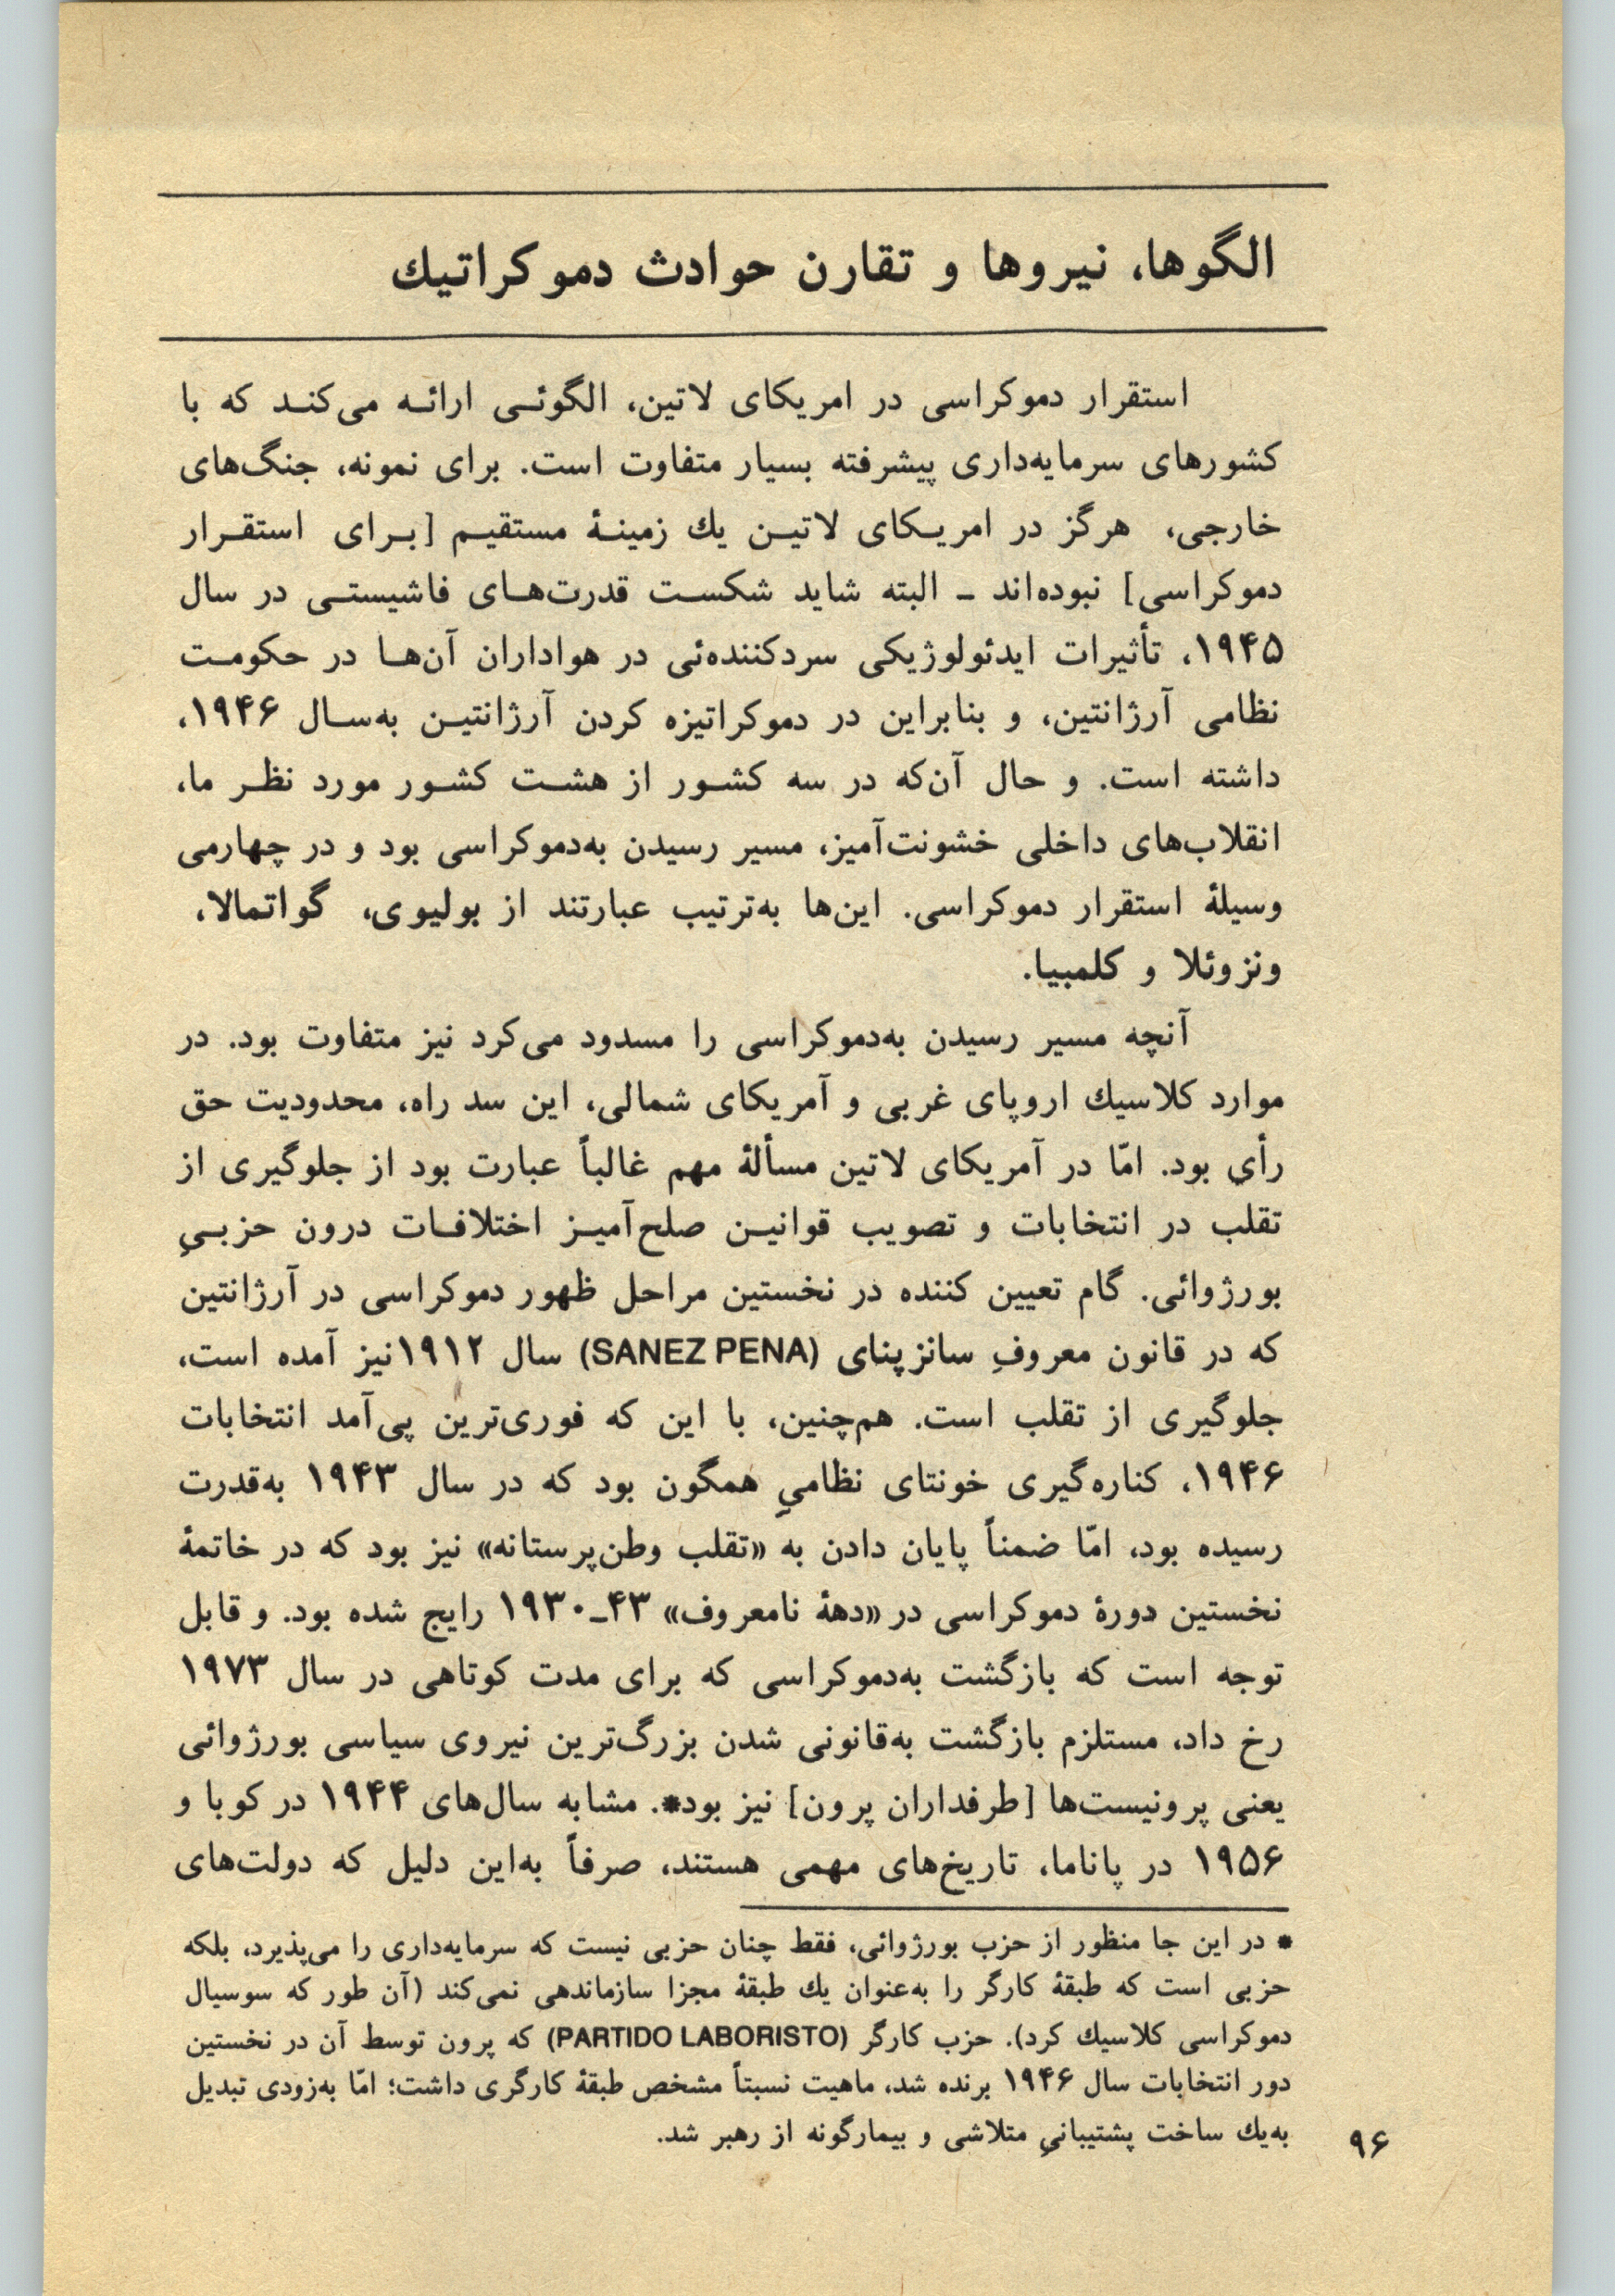 الگوها، نیروها و تقارن حوادث دموکراتیك
استقرار دموکراسی در امریکای لاتین، الگوئی ارائه می‌کند که با
کشورهای سرمایه‌داری پیشرفته بسیار متفاوت است. برای نمونه، جنگ‌های
خارجی، هرگز در امریکای لاتین یك زمینهٔ مستقیم [برای استقرار
دموکراسی] نبوده‌اند ـ البته شاید شکست قدرت‌های فاشیستی در سال
۱۹۴۵، تأثیرات ایدئولوژیکی سردکننده‌ئی در هواداران آن‌ها در حکومت
نظامی آرژانتین، و بنابراین در دموکراتیزه کردن آرژانتین به‌سال ۱۹۴۶،
داشته است. و حال آن‌که در سه کشور از هشت کشور مورد نظر ما،
انقلاب‌های داخلی خشونت‌آمیز، مسیر رسیدن به‌دموکراسی بود و در چهارمی
وسیلهٔ استقرار دموکراسی. این‌ها به‌ترتیب عبارتند از بولیوی، گواتمالا،
ونزوئلا و کلمبیا.
آنچه مسیر رسیدن به‌دموکراسی را مسدود می‌کرد نیز متفاوت بود. در
موارد کلاسیك اروپای غربی و آمریکای شمالی، این سد راه، محدودیت حق
رأی بود. امّا در آمریکای لاتین مسألهٔ مهم غالباً عبارت بود از جلوگیری از
تقلب در انتخابات و تصویب قوانین صلح‌آمیز اختلافات درون حزبیِ
بورژوائی. گام تعیین کننده در نخستین مراحل ظهور دموکراسی در آرژانتین
که در قانون معروفِ سانزپنای (SANEZ PENA) سال ۱۹۱۲نیز آمده است،
جلوگیری از تقلب است. هم‌چنین، با این که فوری‌ترین پی‌آمد انتخابات
۱۹۴۶، کناره‌گیری خونتای نظامیِ همگون بود که در سال ۱۹۴۳ به‌قدرت
رسیده بود، امّا ضمناً پایان دادن به «تقلب وطن‌پرستانه» نیز بود که در خاتمهٔ
نخستین دورهٔ دموکراسی در «دههٔ نامعروف» ۴۳ـ۱۹۳۰ رایج شده بود. و قابل
توجه است که بازگشت به‌دموکراسی که برای مدت کوتاهی در سال ۱۹۷۳
رخ داد، مستلزم بازگشت به‌قانونی شدن بزرگ‌ترین نیروی سیاسی بورژوائی
یعنی پرونیست‌ها [طرفداران پرون] نیز بود*. مشابه سال‌های ۱۹۴۴ در کوبا و
۱۹۵۶ در پاناما، تاریخ‌های مهمی هستند، صرفاً به‌این دلیل که دولت‌های
* در این جا منظور از حزب بورژوائی، فقط چنان حزبی نیست که سرمایه‌داری را می‌پذیرد، بلکه
حزبی است که طبقهٔ کارگر را به‌عنوان یك طبقهٔ مجزا سازماندهی نمی‌کند (آن طور که سوسیال
دموکراسی کلاسیك کرد). حزب کارگر (PARTIDO LABORISTO) که پرون توسط آن در نخستین
دور انتخابات سال ۱۹۴۶ برنده شد، ماهیت نسبتاً مشخص طبقهٔ کارگری داشت؛ امّا به‌زودی تبدیل
به‌یك ساخت پشتیبانیِ متلاشی و بیمارگونه از رهبر شد.
۹۶